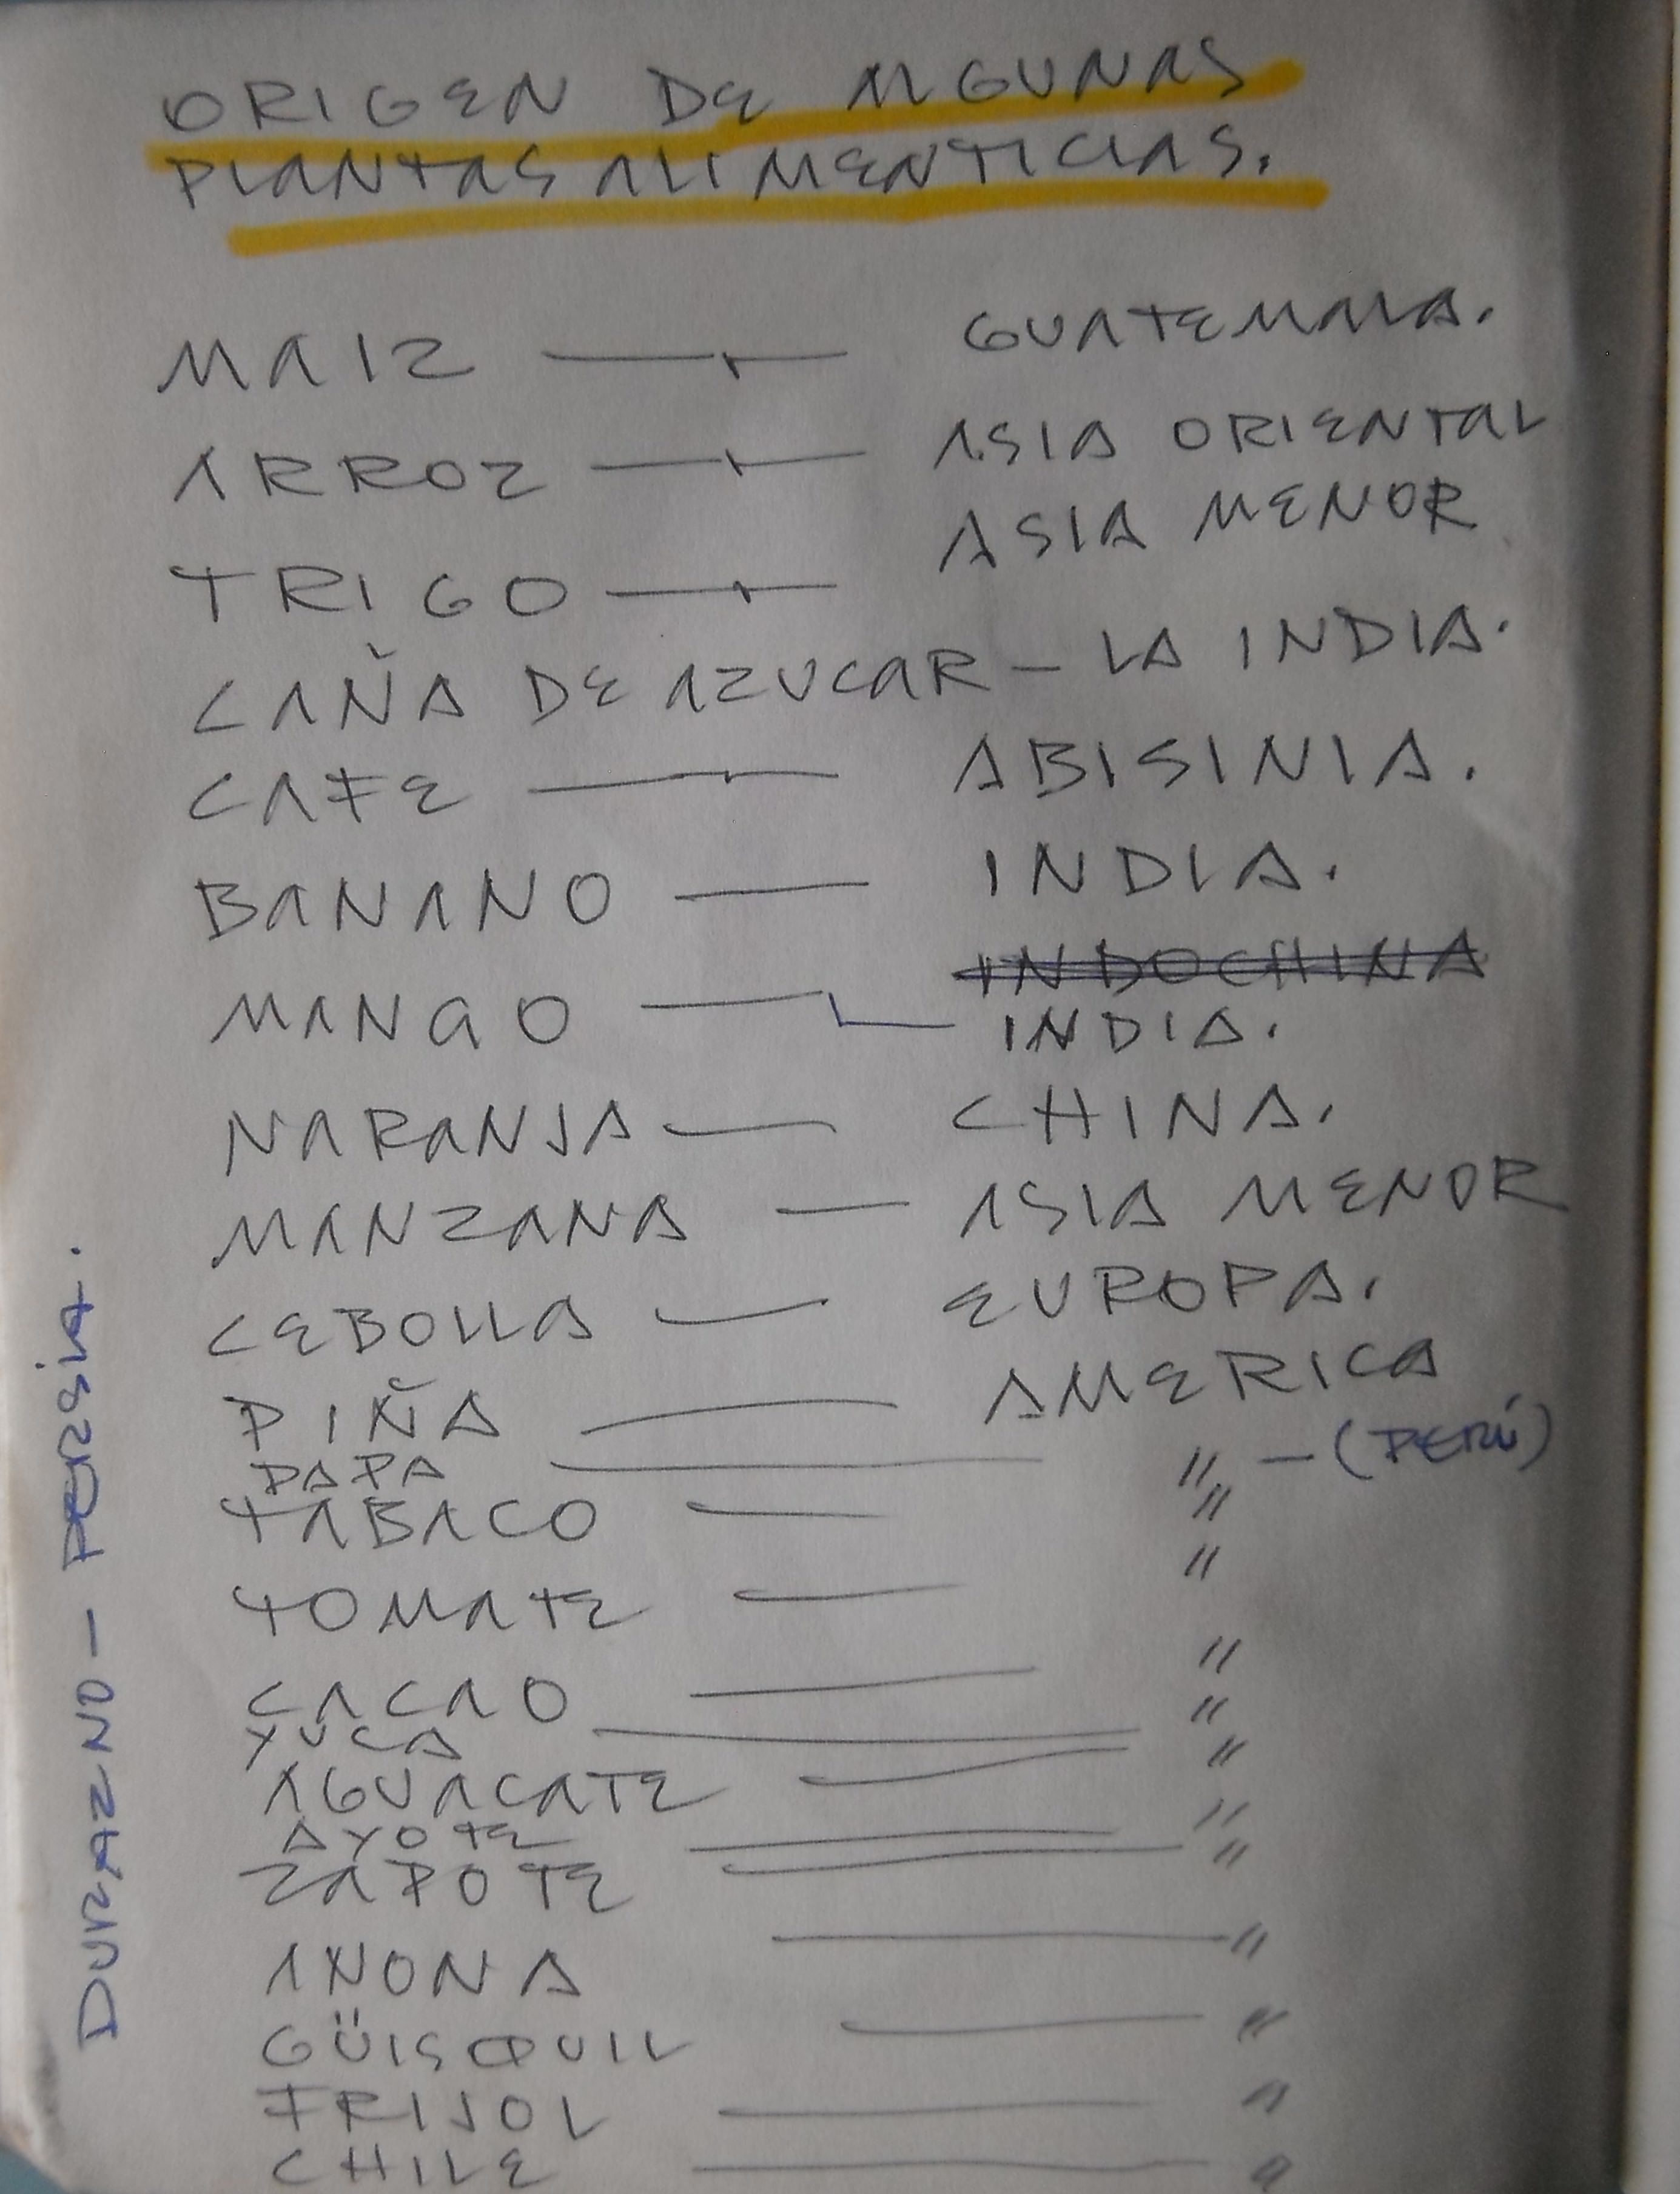 ORIGEN DE ALGUNAS
PLANTAS ALIMENTICIAS.
MAIZ — GUATEMALA.
ARROZ — ASIA ORIENTAL
TRIGO — ASIA MENOR
CAÑA DE AZUCAR — LA INDIA.
CAFE — ABISINIA.
BANANO — INDIA.
INDOCHINA
MANGO — INDIA.
NARANJA — CHINA.
MANZANA — ASIA MENOR
CEBOLLA — EUROPA.
PIÑA — AMERICA
PAPA — " — (PERÚ)
TABACO — "
TOMATE — "
CACAO — "
YUCA — "
AGUACATE — "
AYOTE — "
ZAPOTE — "
ANONA — "
GÜISQUIL — "
FRIJOL — "
CHILE — "
DURAZNO — PERSIA.